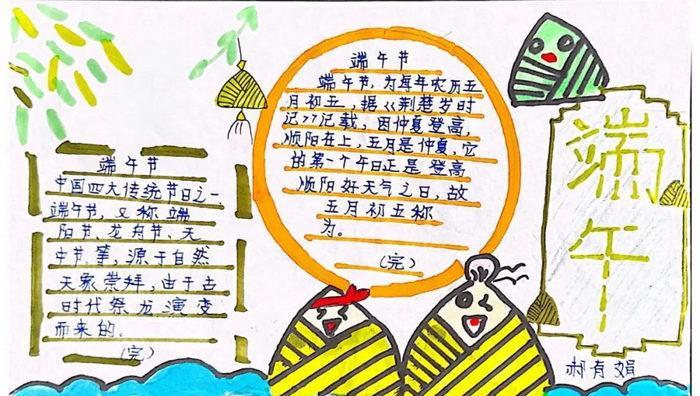 端午节
中国四大传统节日之一
端午节，又称端
阳节、龙舟节、天
中节等，源于自然
天象崇拜，由于古
时代祭龙演变
而来的。
（完）
端午节
端午节，为每年农历五
月初五，据《荆楚岁时
记》记载，因仲夏登高，
顺阳在上，五月是仲夏，它
的第一个午日正是登高
顺阳好天气之日，故
五月初五称
为。
（完）
端午
郝有娟